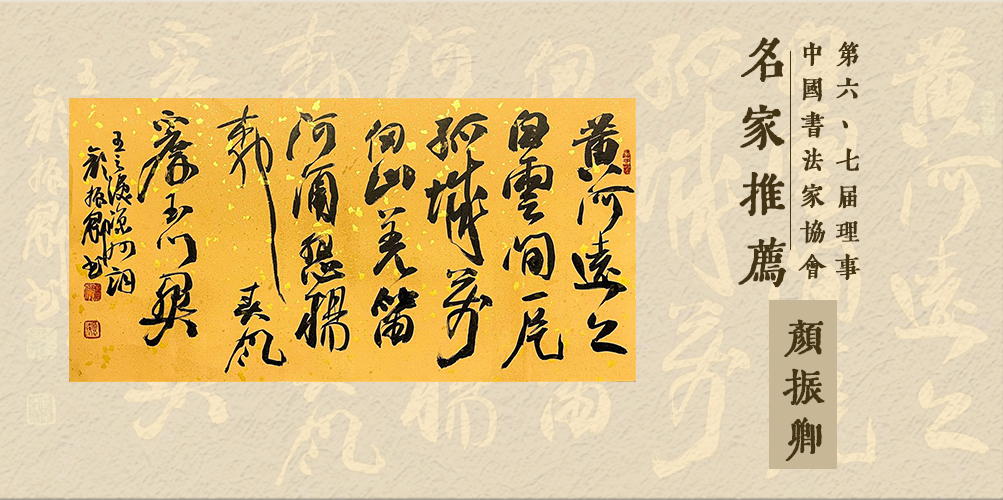 第六、七届理事
中國書法家協會
名家推薦
顏振卿
黄河遠上
白雲間一片
孤城萬
仞山羌笛
何須怨楊
柳春風
不度玉门關
王之渙涼州詞
顏振卿書